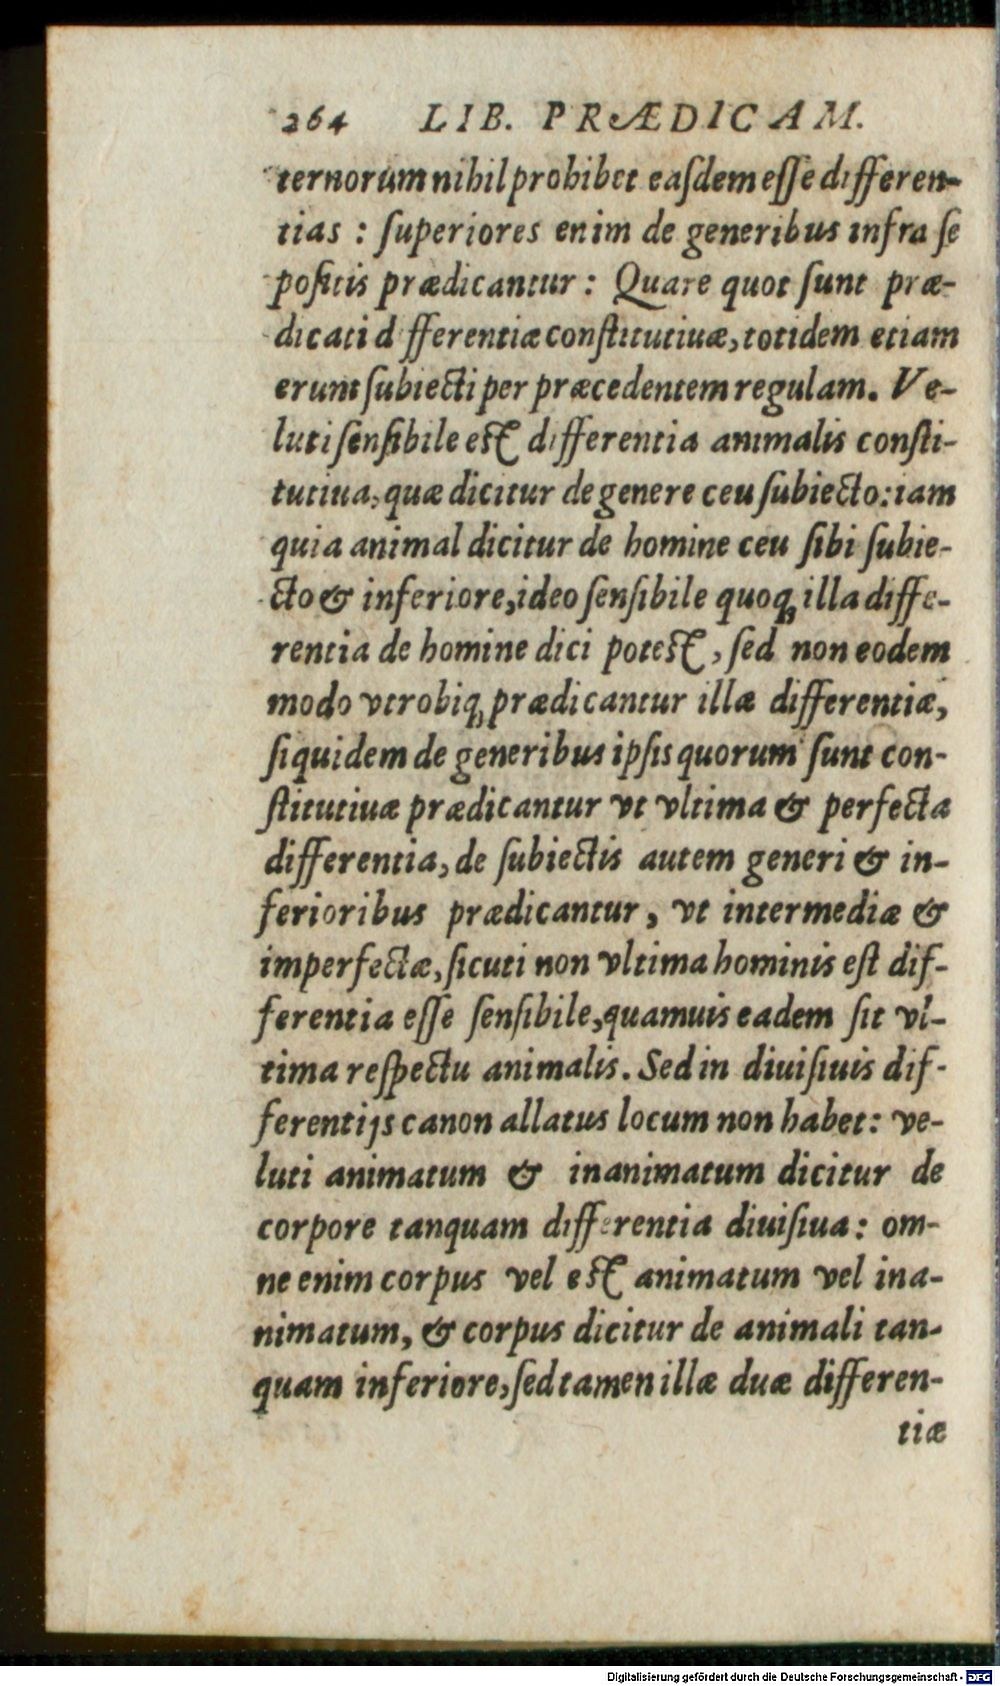 264 LIB. PRÆDICAM.
ternorum nihil prohibet eaſdem eſſe differen-
tias : ſuperiores enim de generibus infra ſe
poſitis prædicantur : Quare quot ſunt præ-
dicati d fferentiæ conſtitutiuæ, totidem etiam
erunt ſubiecti per præcedentem regulam. Ve-
luti ſenſibile eſt differentia animalis conſti-
tutiua, quæ dicitur de genere ceu ſubiecto: iam
quia animal dicitur de homine ceu ſibi ſubie-
cto & inferiore, ideo ſenſibile quoq; illa diffe-
rentia de homine dici poteſt, ſed non eodem
modo vtrobiq; prædicantur illæ differentiæ,
ſiquidem de generibus ipſis quorum ſunt con-
ſtitutiuæ prædicantur vt vltima & perfecta
differentia, de ſubiectis autem generi & in-
ferioribus prædicantur, vt intermediæ &
imperfectæ, ſicuti non vltima hominis eſt dif-
ferentia eſſe ſenſibile, quamuis eadem ſit vl-
tima reſpectu animalis. Sed in diuiſiuis dif-
ferentijs canon allatus locum non habet: ve-
luti animatum & inanimatum dicitur de
corpore tanquam differentia diuiſiua: om-
ne enim corpus vel eſt animatum vel ina-
nimatum, & corpus dicitur de animali tan-
quam inferiore, ſed tamen illæ duæ differen-
tiæ
Digitalisierung gefördert durch die Deutsche Forschungsgemeinschaft - DFG